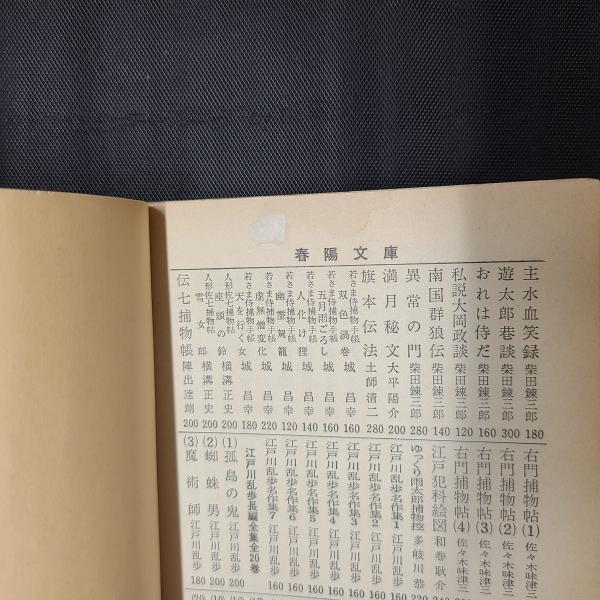 春陽文庫
主水血笑録 柴田錬三郎 180
遊太郎巷談 柴田錬三郎 300
おれは侍だ 柴田錬三郎 160
私説大岡政談 柴田錬三郎 120
南国群狼伝 柴田錬三郎 140
異常の門 柴田錬三郎 280
満月秘文 大平陽介 200
旗本伝法 土師清二 280
若さま侍捕物手帳 双色渦巻 城昌幸 160
若さま侍捕物手帳 五月雨ごろし 城昌幸 160
若さま侍捕物手帳 人化け狸 城昌幸 140
若さま侍捕物手帳 幽霊駕籠 城昌幸 120
若さま侍捕物手帳 虚無僧変化 城昌幸 220
若さま侍捕物手帳 天を行く女 城昌幸 180
人形佐七捕物帖 座頭の鈴 横溝正史 200
人形佐七捕物帖 雪女郎 横溝正史 200
伝七捕物帳 陣出達朗 200
右門捕物帖(1) 佐々木味津三
右門捕物帖(2) 佐々木味津三
右門捕物帖(3) 佐々木味津三
右門捕物帖(4) 佐々木味津三
江戸犯科絵図 和巻耿介
ゆっくり雨太郎捕物控 多岐川恭 220
江戸川乱歩名作集1 江戸川乱歩 160
江戸川乱歩名作集2 江戸川乱歩 160
江戸川乱歩名作集3 江戸川乱歩 160
江戸川乱歩名作集4 江戸川乱歩 160
江戸川乱歩名作集5 江戸川乱歩 160
江戸川乱歩名作集6 江戸川乱歩 160
江戸川乱歩名作集7 江戸川乱歩 160
江戸川乱歩長編全集全20巻
(1)孤島の鬼 江戸川乱歩 200
(2)蜘蛛男 江戸川乱歩 200
(3)魔術師 江戸川乱歩 180